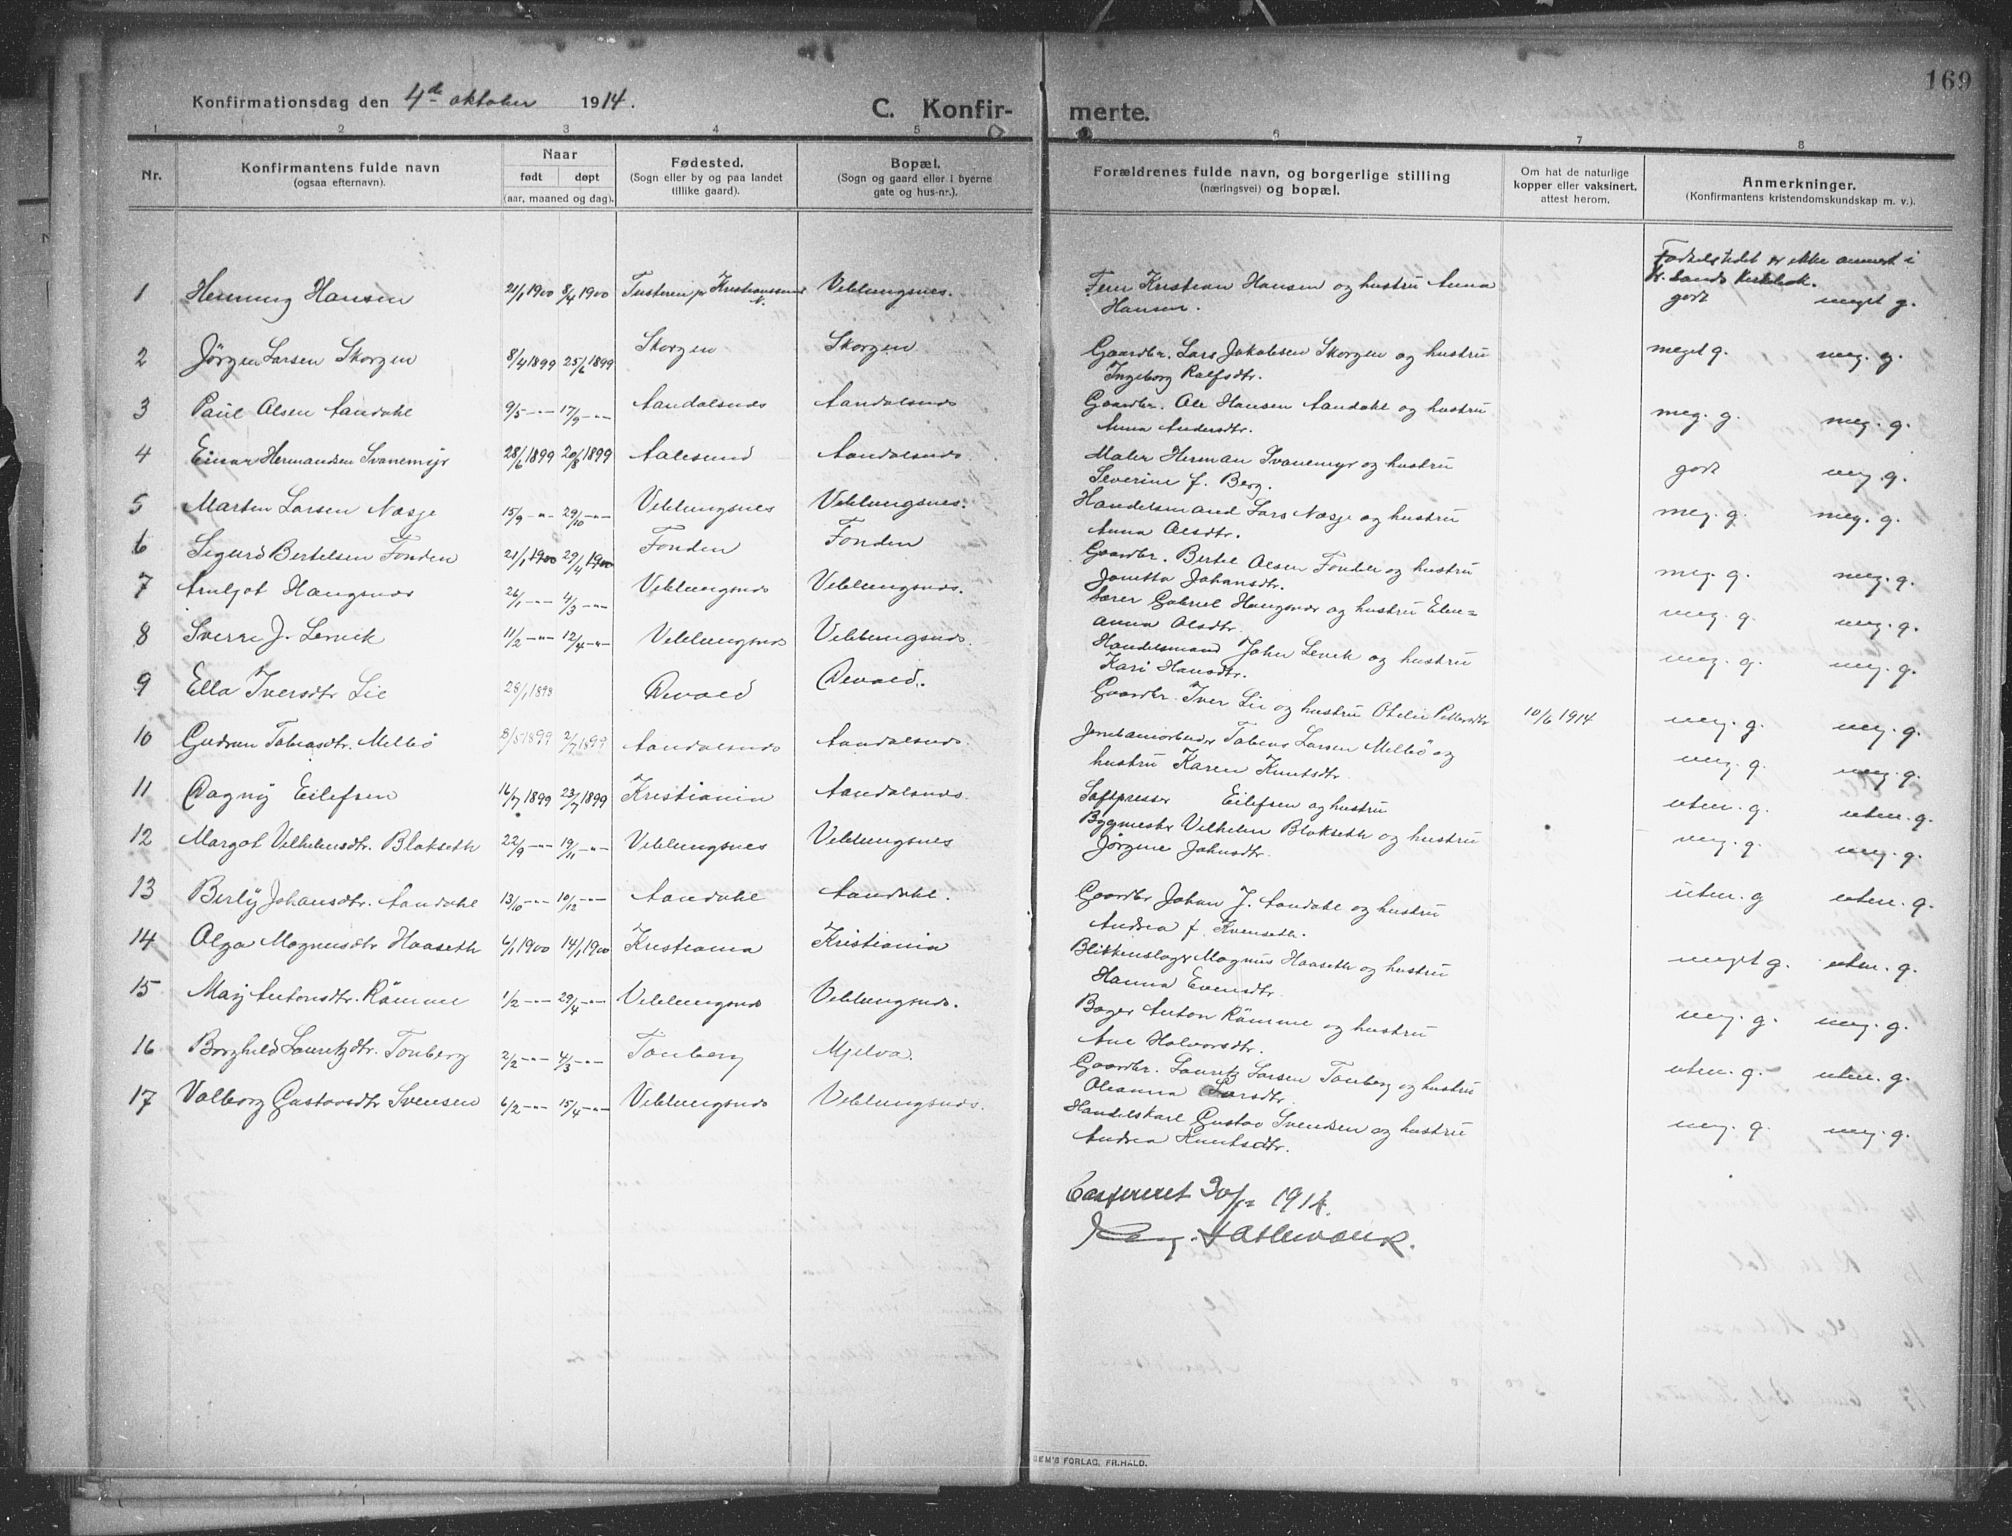 169
Konfirmationsdag den 4de oktober 1914.
C. Konfir- merte.
1 2 3 4 5 6 7 8
Nr.
Konfirmantens fulde navn
(ogsaa efternavn).
Naar
født døpt
(aar, maaned og dag).
Fødested.
(Sogn eller by og paa landet
tillike gaard).
Bopæl.
(Sogn og gaard eller i byerne
gate og hus-nr.).
Forældrenes fulde navn, og borgerlige stilling
(næringsvei) og bopæl.
Om hat de naturlige
kopper eller vaksinert,
attest herom.
Anmerkninger.
(Konfirmantens kristendomskundskap m. v.).
Fødselstidet er ikke anmert i
Kr.sands kirkebok.
1 Henning Hansen 21/1 1900 8/4 1900 Tusteren pr Kristianssund N. Veblungsnes. Kristian Hansen og hustru Anna
Hansen. godt meget g.
2 Jörgen Larsen Skorgen 8/4 1899 25/6 1899 Skorgen Skorgen Gaardbr. Lars Jakobsen Skorgen og hustru
Ingeborg Rolfsdtr. meget g. meg. g.
3 Paul Olsen Aandahl 9/5 -"- 17/9 -"- Aandalsnes Aandalsnes Gaardbr. Ole Hansen Aandahl og hustru
Anna Andersdtr. meg. g. meg. g.
4 Einar Hermandsen Svanemyr 28/6 1899 20/8 1899 Aalesund Aandalsnes Maler Herman Svanemyr og hustru
Severine f. Berg. godt meg. g.
5 Marten Larsen Næsje 15/9 -"- 29/10 -"- Veblungsnes Veblungsnes. Handelsmand Lars Næsje og hustru
Anna Olsdtr. meg. g. meg. g.
6 Sigurd Bertelsen Fonden 21/1 1900 29/4 1900 Fonden Fonden Gaardbr. Bertel Olsen Fonden og hustru
Jonetta Johansdtr. meg. g. meg. g.
7 Arnljot Hangsnes 26/1 -"- 4/3 -"- Veblungsnes Veblungsnes. Lærer Gabriel Hangsnes og hustru Elen=
anna Olsdtr. meg. g. meg. g.
8 Sverre J. Lervik 11/2 -"- 12/4 -"- Veblungsnes Veblungsnes. Handelsmand John Levik og hustru
Kari Hansdtr. meg. g. meg. g.
9 Ella Iversdtr Lie 28/1 1899 Devold Devold. Gaardbr. Iver Lie og hustru Otelie Pettersdtr 10/6 1914 meg. g. meg. g.
10 Gudrun Tobiasdtr. Melbö 8/5 1899 2/7 1899 Aandalsnes Aandalsnes. Jernbanearbeider Tobias Larsen Melbö og
hustru Karen Knutsdtr. meg. g. meg. g.
11 Dagny Eilefsen 16/7 1899 23/7 1899 Kristiania Aandalsnes. Saftpresser Eilefsen og hustru utm. g. utm. g.
12 Margot Vilhelmsdtr. Blakseth 22/9 -"- 19/11 -"- Veblungsnes Veblungsnes Bygmester Vilhelm Blakseth og hustru
Jörgine Johnsdtr. meg. g. meg. g.
13 Berly Johansdtr. Aandahl 13/10 -"- 10/12 -"- Aandahl Aandahl. Gaardbr Johan J. Aandahl og hustru
Andrea f. Kvenseth. utm. g utm. g.
14 Olga Magnusdtr Haaseth 6/1 1900 14/1 1900 Kristiania Kristiania Blikkenslager Magnus Haaseth og hustru
Hanna Evensdtr. meget g. utm. g.
15 May Antonsdtr. Römme 1/2 -"- 29/4 -"- Veblungsnes Veblungsnes. Bager Anton Römme og hustru
Ane Halvorsdtr. meg. g. meg. g.
16 Borghild Lauritzdtr. Tonberg 2/2 -"- 4/3 -"- Tonberg Mjelva. Gaardbr. Lauritz Larsen Tonberg og hustru
Oleanna Larsdtr. utm. g. utm. g.
17 Valborg Gustavsdtr Svensen 6/2 -"- 15/4 -"- Veblungsnes Veblungsnes. Handelskarl Gustav Svendsen og hustru
Andrea Knutsdtr. meg. g. meg. g.
Confereret 30/12 1914.
FORLAG, FR.HALD.